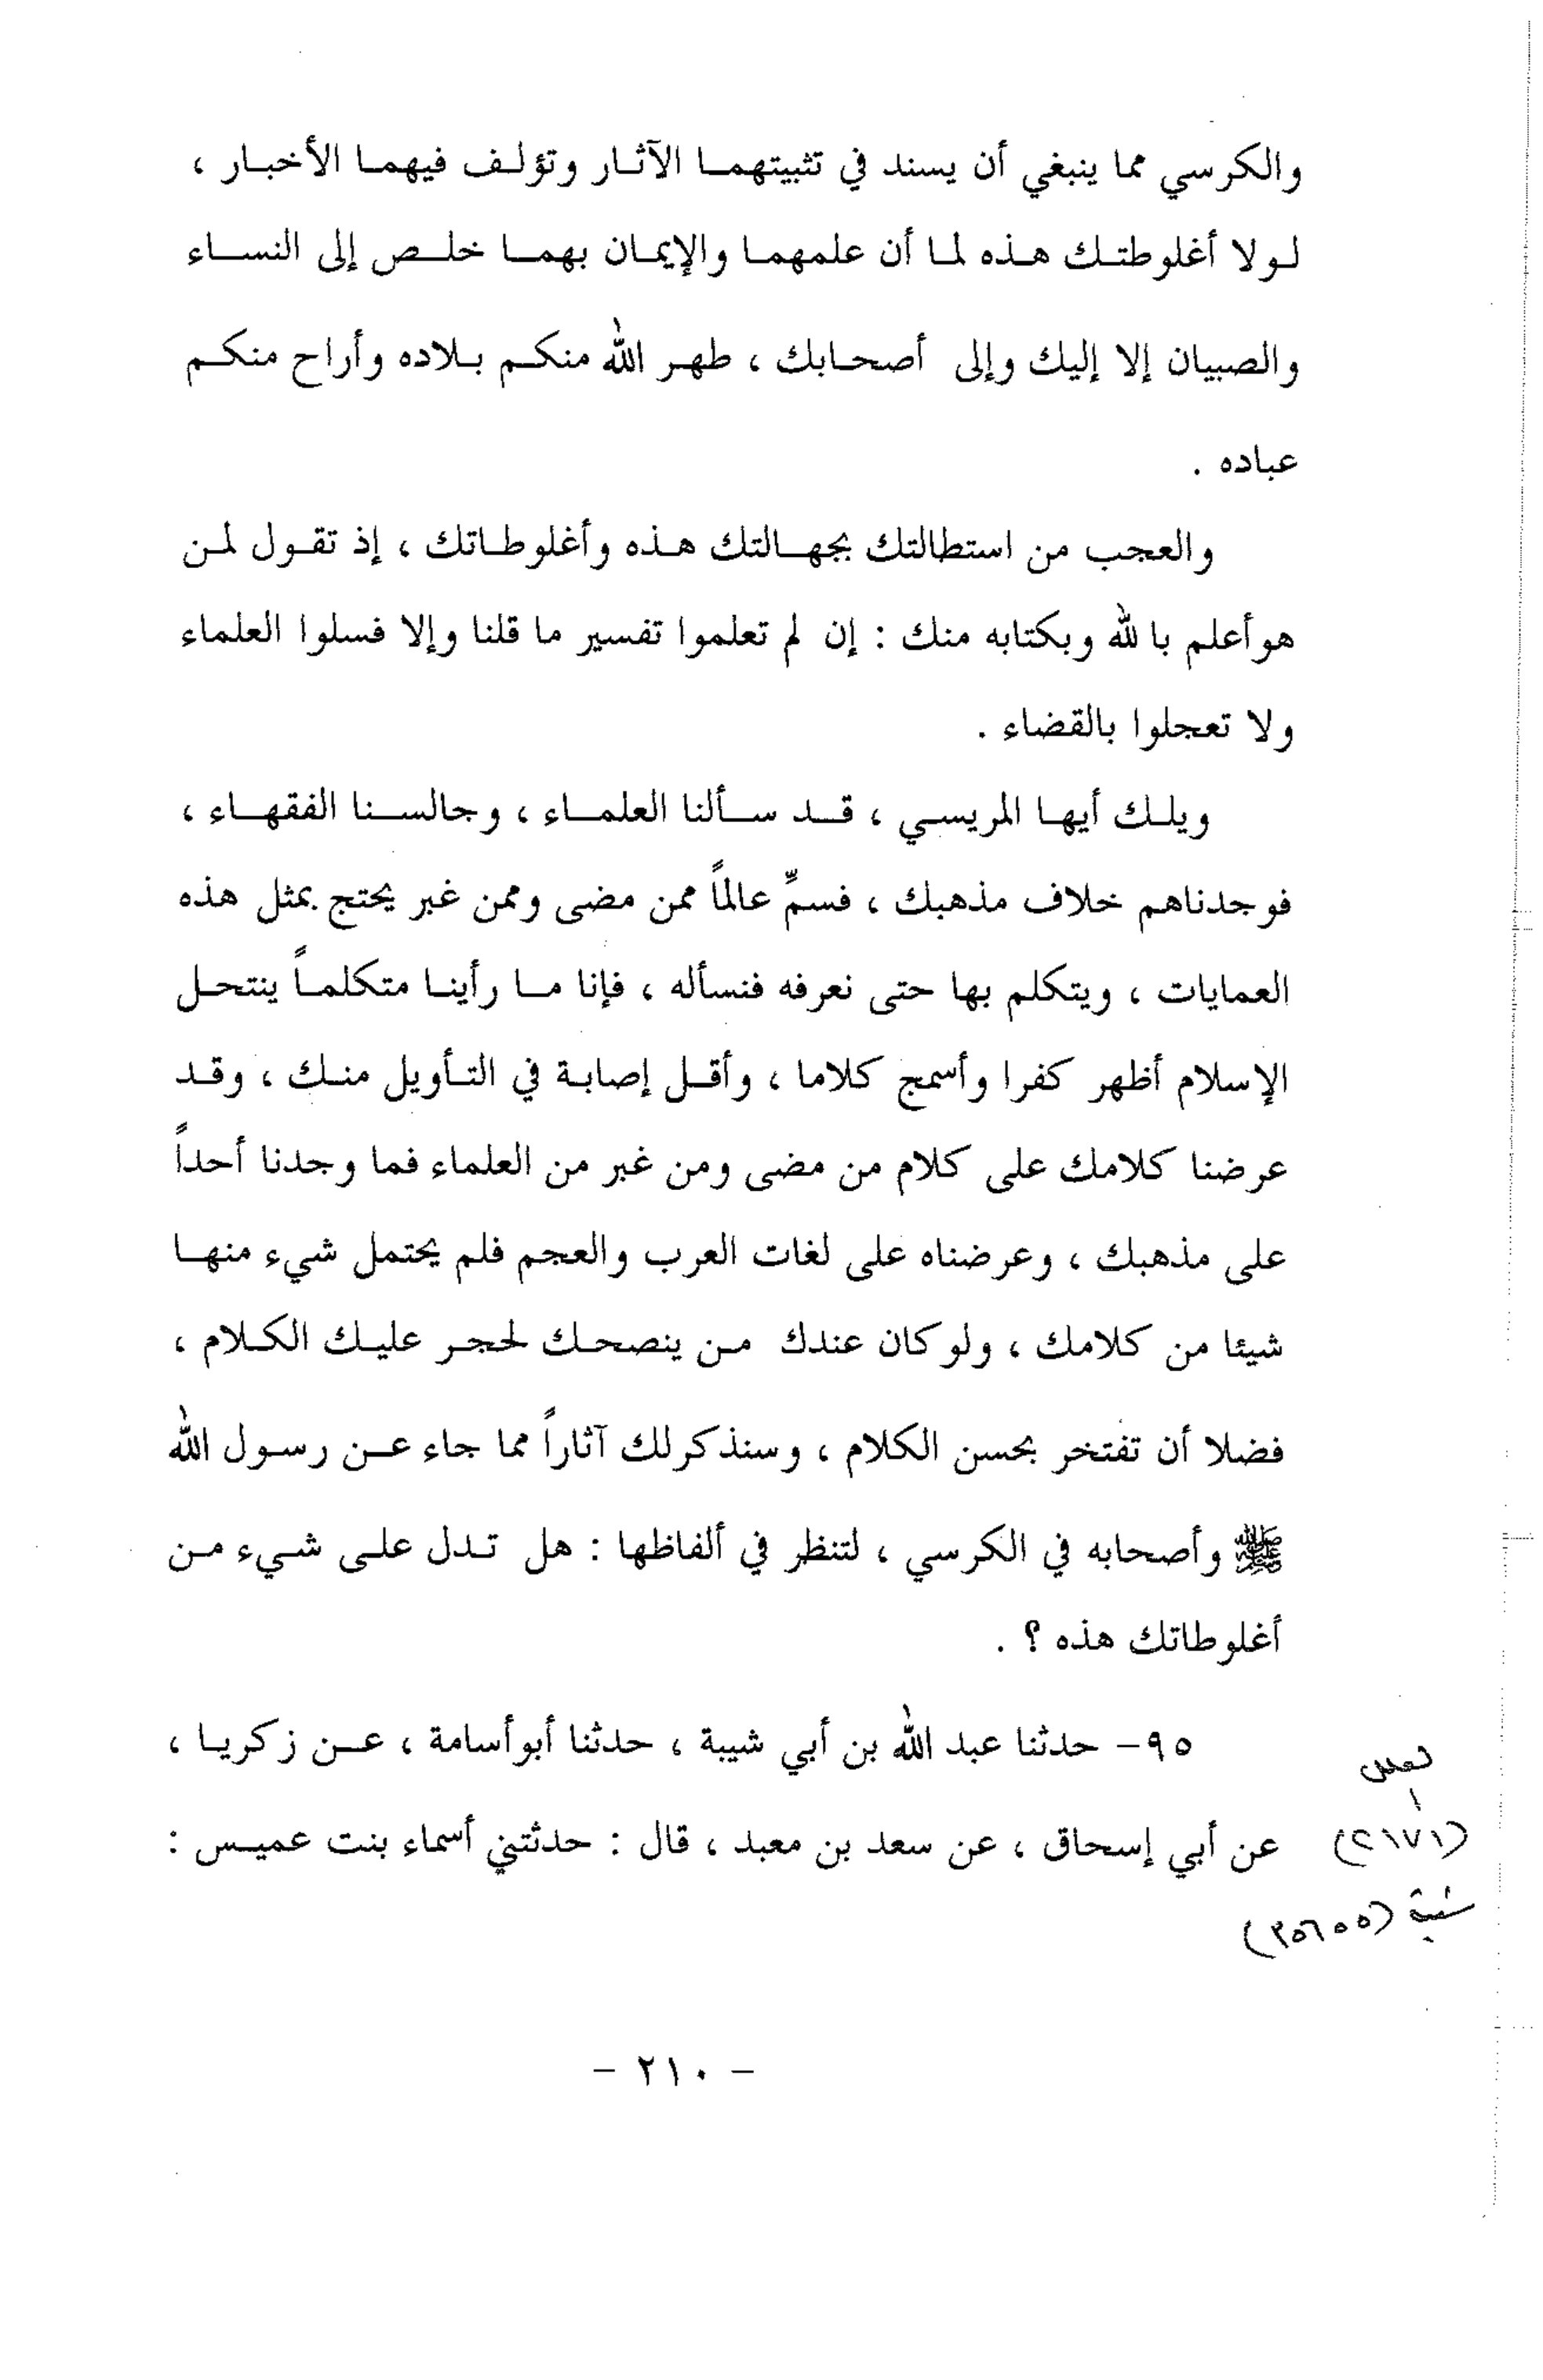 والكرسي مما ينبغي أن يسند في تثبيتهما الآثار وتؤلف فيهما الأخبار ،
لولا أغلوطتك هذه لما أن علمهما والإيمان بهما خلص إلى النساء
والصبيان إلا إليك وإلى أصحابك ، طهر الله منكم بلاده وأراح منكم
عباده .
والعجب من استطالتك بجهالتك هذه وأغلوطاتك ، إذ تقول لمن
هو أعلم بالله وبكتابه منك : إن لم تعلموا تفسير ما قلنا وإلا فسلوا العلماء
ولا تعجلوا بالقضاء .
ويلك أيها المريسي ، قد سألنا العلماء ، وجالسنا الفقهاء ،
فوجدناهم خلاف مذهبك ، فسمِّ عالماً ممن مضى وممن غبر يحتج بمثل هذه
العمايات ، ويتكلم بها حتى نعرفه فنسأله ، فإنا ما رأينا متكلماً ينتحل
الإسلام أظهر كفرا وأسمج كلاما ، وأقل إصابة في التأويل منك ، وقد
عرضنا كلامك على كلام من مضى ومن غبر من العلماء فما وجدنا أحداً
على مذهبك ، وعرضناه على لغات العرب والعجم فلم يحتمل شيء منها
شيئا من كلامك ، ولو كان عندك من ينصحك لحجر عليك الكلام ،
فضلا أن تفتخر بحسن الكلام ، وسنذكر لك آثاراً مما جاء عن رسول الله
ﷺ وأصحابه في الكرسي ، لتنظر في ألفاظها : هل تدل على شيء من
أغلوطاتك هذه ؟ .
٩٥- حدثنا عبد الله بن أبي شيبة ، حدثنا أبو أسامة ، عن زكريا ،
عن أبي إسحاق ، عن سعد بن معبد ، قال : حدثتني أسماء بنت عميس :
(٢١٧١)
شيبة (٣٥٦٥٥)
- ٢١٠ -